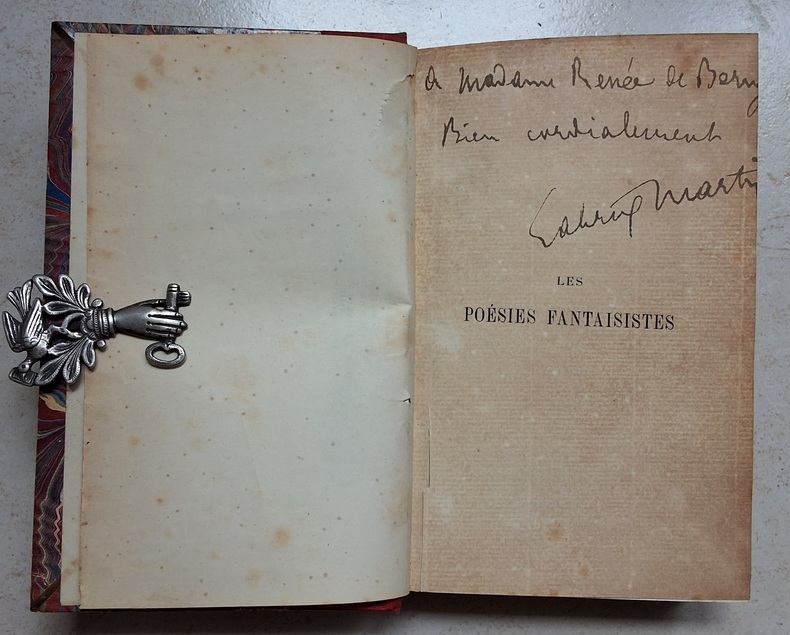 à Madame Renée de Berny
Bien cordialement
Gabriel Martin
LES
POÉSIES FANTAISISTES